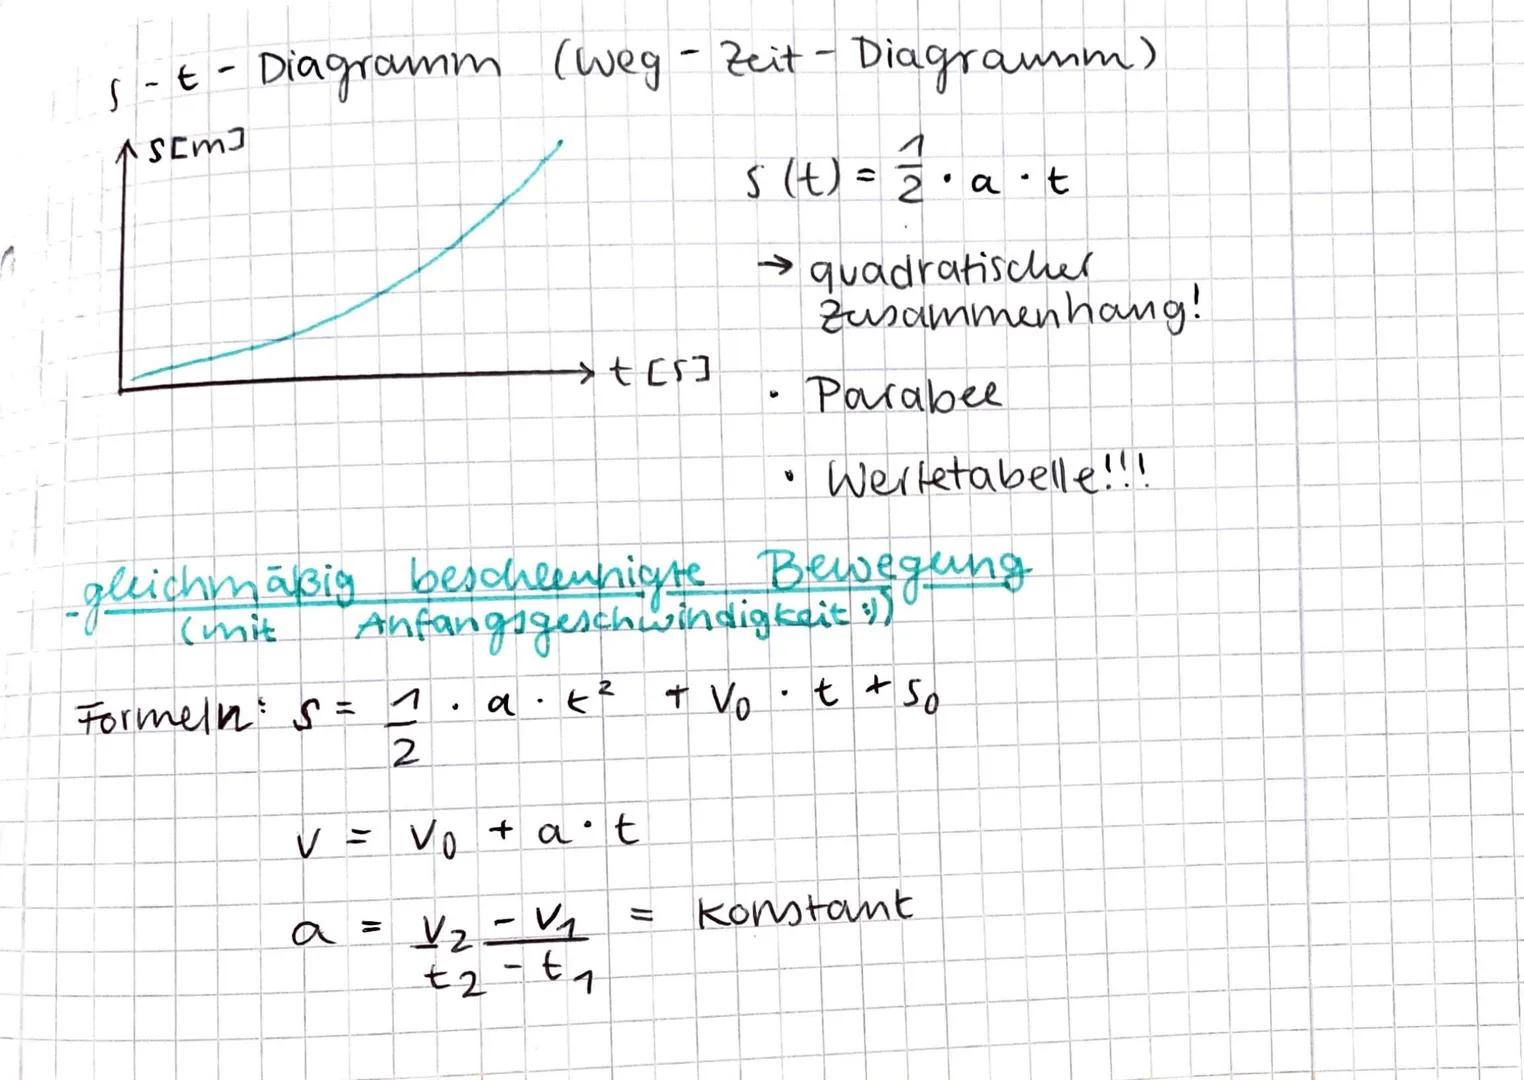 s - t - Diagramm (Weg - Zeit - Diagramm)
s[m]
t [s]
s (t) = 1/2 · a · t
→ quadratischer
Zusammenhang!
· Parabel
· Wertetabelle!!!
- gleichmäßig beschleunigte Bewegung
(mit Anfangsgeschwindigkeit :))
Formeln: s = 1/2 · a · t² + v₀ · t + s₀
v = v₀ + a · t
a = v₂ - v₁ / t₂ - t₁ = konstant